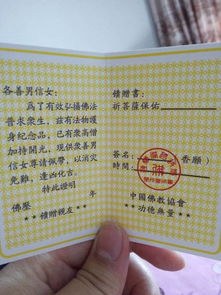 各善男信女：
爲了有效弘揚佛法
普求衆生，兹有法物護
身紀念品，已有衆高僧
加持開光，現供衆善男
信女尊请佩帶，以消灾
免難，逢凶化吉。
特此證明
佛曆　　年
**饋贈親友**
饋贈書：
祈菩薩保佑
签名：　　香願）
時間：
中國佛教協會
**功德無量**